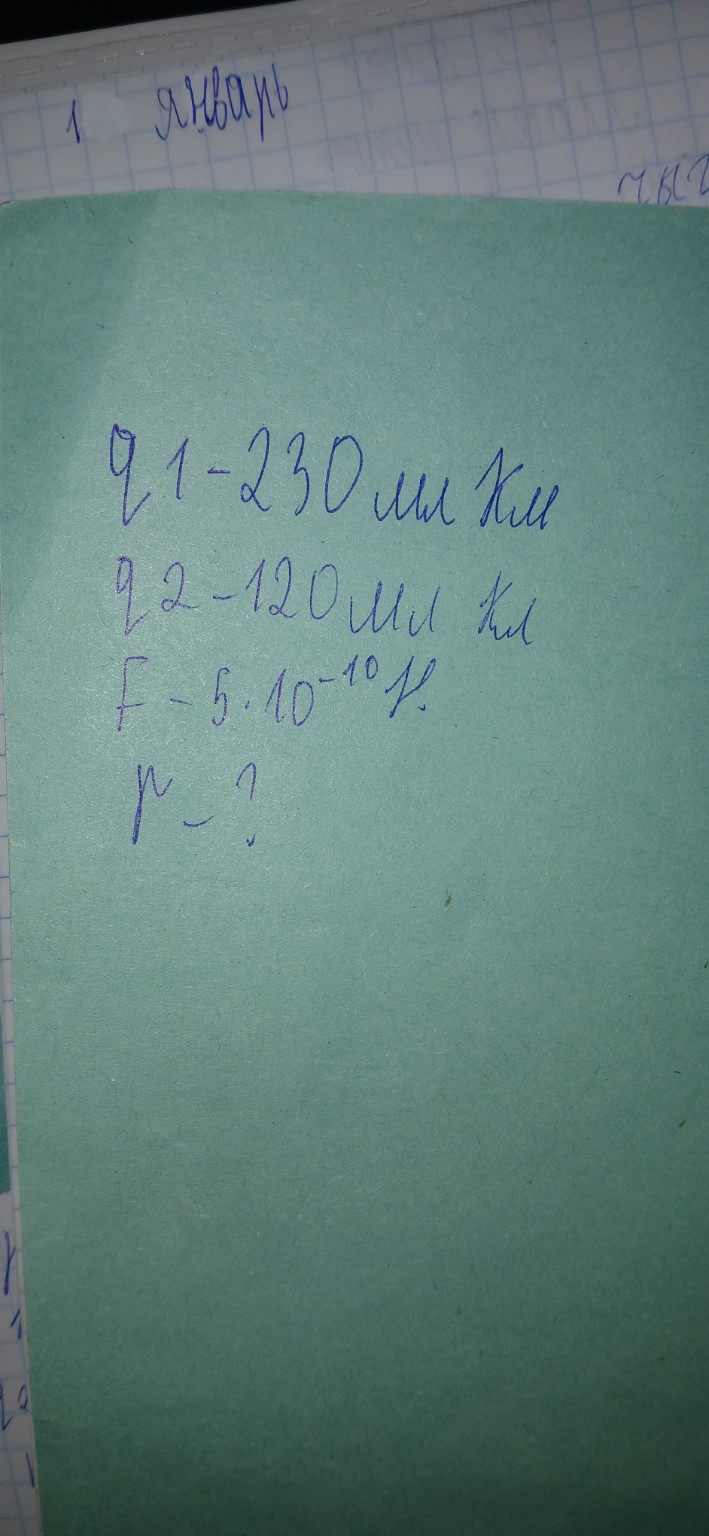 1 январь
q1-230 мл Км
q2-120 мл Кл
F-5·10⁻¹⁰Н.
r-?